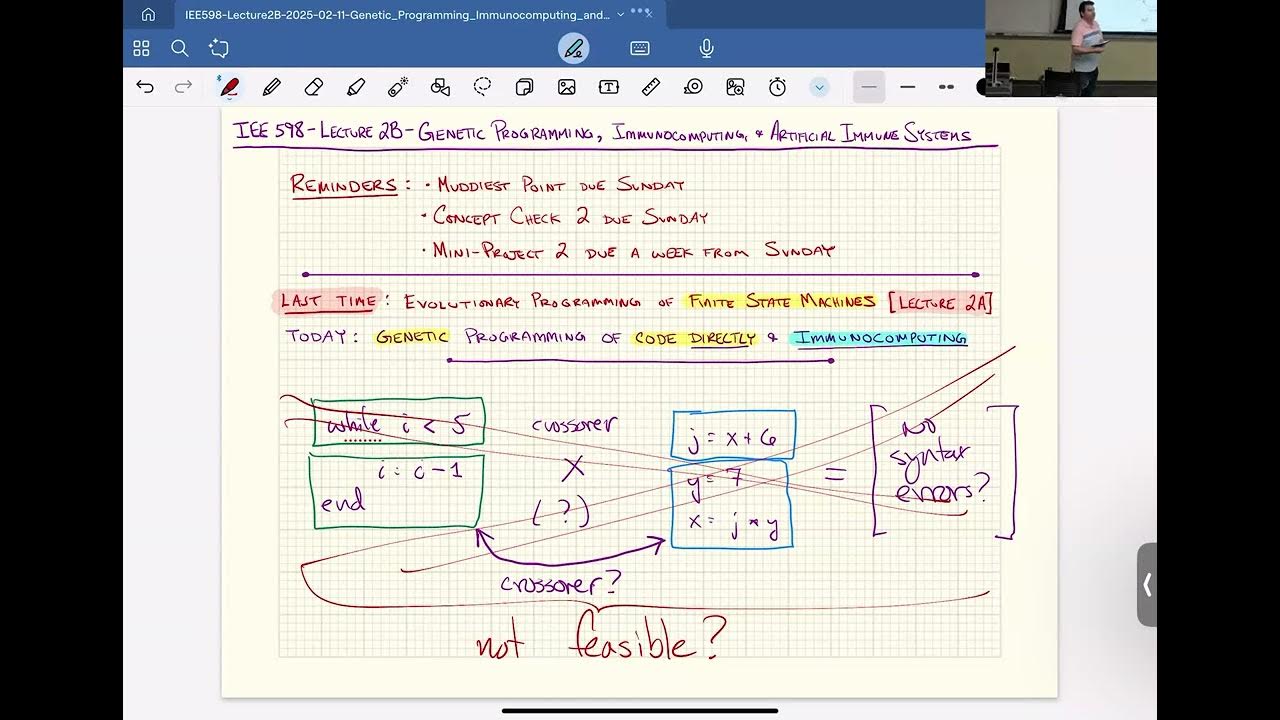 IEE598-Lecture2B-2025-02-11-Genetic_Programming_Immunocomputing_and...
IEE 598-LECTURE 2B-GENETIC PROGRAMMING, IMMUNOCOMPUTING, & ARTIFICIAL IMMUNE SYSTEMS
REMINDERS: • MUDDIEST POINT DUE SUNDAY
• CONCEPT CHECK 2 DUE SUNDAY
• MINI-PROJECT 2 DUE A WEEK FROM SUNDAY
LAST TIME: EVOLUTIONARY PROGRAMMING OF FINITE STATE MACHINES [LECTURE 2A]
TODAY: GENETIC PROGRAMMING OF CODE DIRECTLY & IMMUNOCOMPUTING
while i < 5
i = i - 1
end
crossover
X
(?)
j = x + 6
y = 7
x = j * y
=
No
syntax
errors?
crossover?
not feasible?